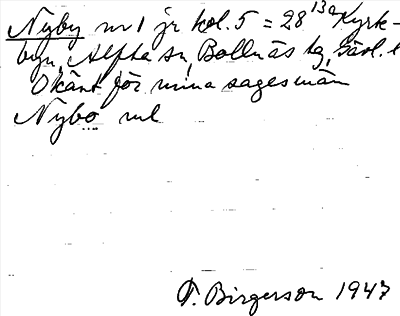 Nyby nr 1 jr kol. 5 = 28 13a Kyrk-
byn, Alfta sn, Bollnäs tg, Gävl. l
Okänt för mina sagesmän
Nybo ml
F. Birgerson 1947